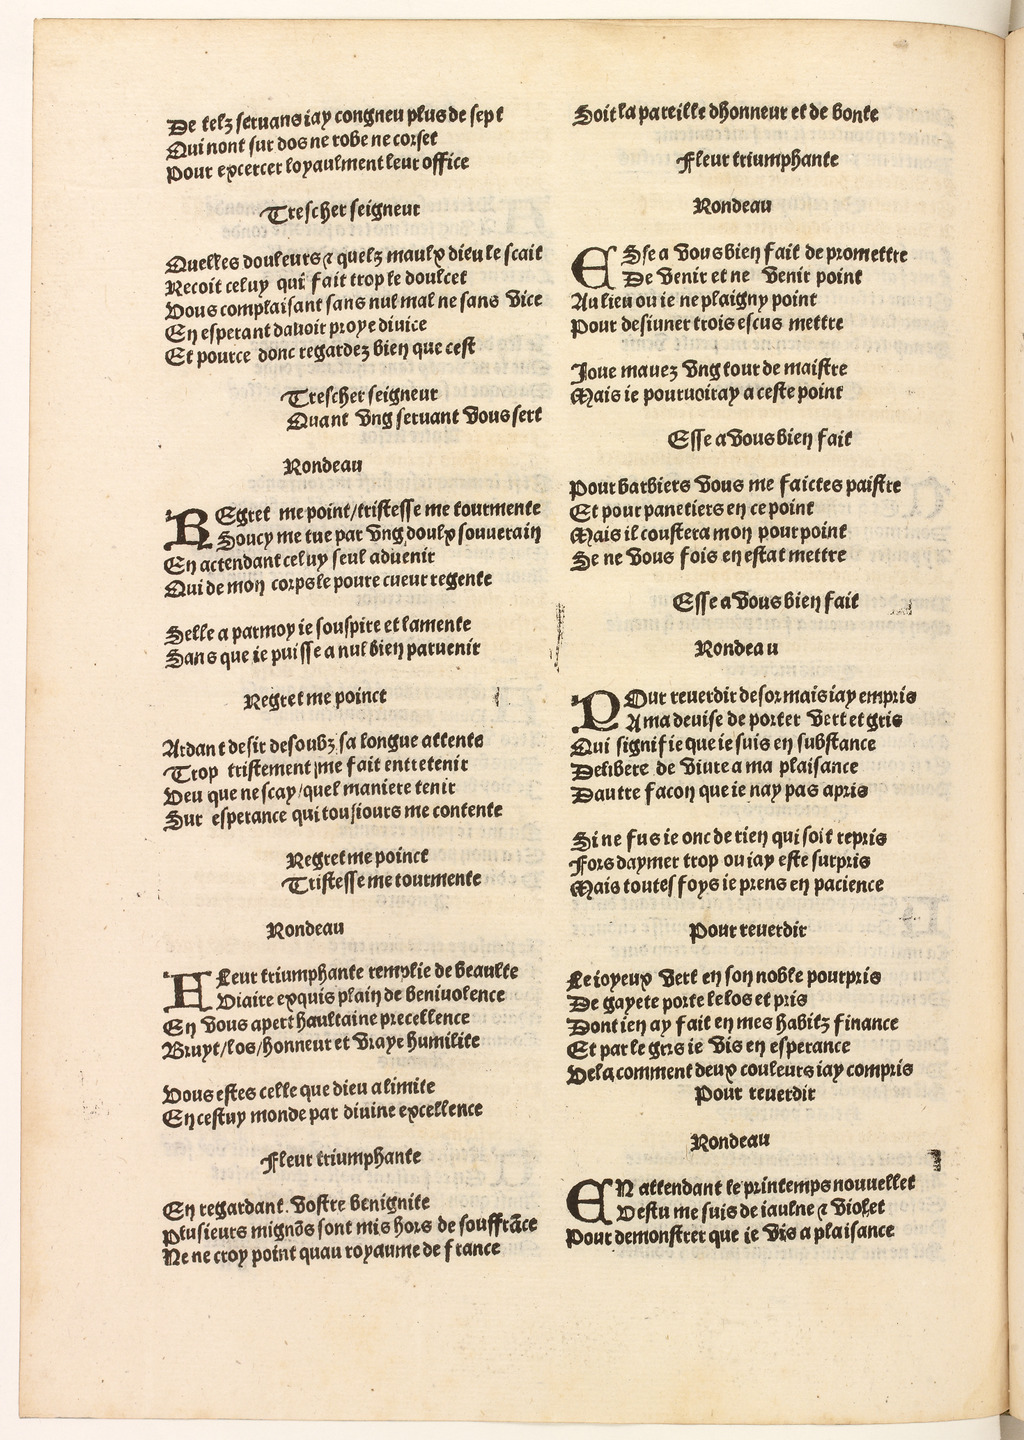 De telz seruans iay congneu plus de sept
Qui nont sur dos ne robe ne corset
Pour excercer loyaulment leur office
Trescher seigneur
Quelles douleurs ⁊ quelz maulx dieu le scait
Recoit celuy qui fait trop le doulcet
Vous complaisant sans nul mal ne sans vice
En esperant dauoir proye diuice
Et pource donc regardez bien que cest
Trescher seigneur
Quant vng seruant vous sert
Rondeau
REgret me point/tristesse me tourmente
Soucy me tue par vng doulx souuerain
En actendant celuy seul aduenir
Qui de mon corps le poure cueur regente
Selle a parmoy ie souspire et lamente
Sans que ie puisse a nul bien paruenir
Regret me poinct
Ardant desir desoubz sa longue attente
Trop tristement me fait entretenir
Veu que ne scay/quel maniere tenir
Sur esperance qui tousiours me contente
Regret me poinct
Tristesse me tourmente
Rondeau
FLeur triumphante remplie de beaulte
Viaire exquis plain de beniuolence
En vous apert haultaine precellence
Bruyt/los/honneur et vraye humilite
Vous estes celle que dieu a limite
En cestuy monde par diuine excellence
Fleur triumphante
En regardant vostre benignite
Plusieurs mignõs sont mis hors de souffrãce
Ne ne croy point quau royaume de france
Soit la pareille dhonneur et de bonte
Fleur triumphante
Rondeau
ESse a vous bien fait de promettre
De venir et ne venir point
Au lieu ou ie ne plaigny point
Pour desiuner trois escus mettre
Ioue mauez vng tour de maistre
Mais ie pouruoiray a ceste point
Esse a vous bien fait
Pour barbiers vous me faictes paistre
Et pour panetiers en ce point
Mais il coustera mon pourpoint
Se ne vous fois en estat mettre
Esse a vous bien fait
Rondeau
POur reuerdir desormais iay empris
A ma deuise de porter vert et gris
Qui signifie que ie suis en substance
Delibere de viure a ma plaisance
Dautre facon que ie nay pas apris
Si ne fus ie onc de rien qui soit repris
Fors daymer trop ou iay este surpris
Mais toutesfoys ie prens en pacience
Pour reuerdir
Le ioyeux vert en son noble pourpris
De gayete porte le los et pris
Dont ien ay fait en mes habitz finance
Et par le gris ie vis en esperance
Vela comment deux couleurs iay compris
Pour reuerdir
Rondeau
EN attendant le printemps nouuellet
Vestu me suis de iaulne ⁊ violet
Pour demonstrer que ie vis a plaisance